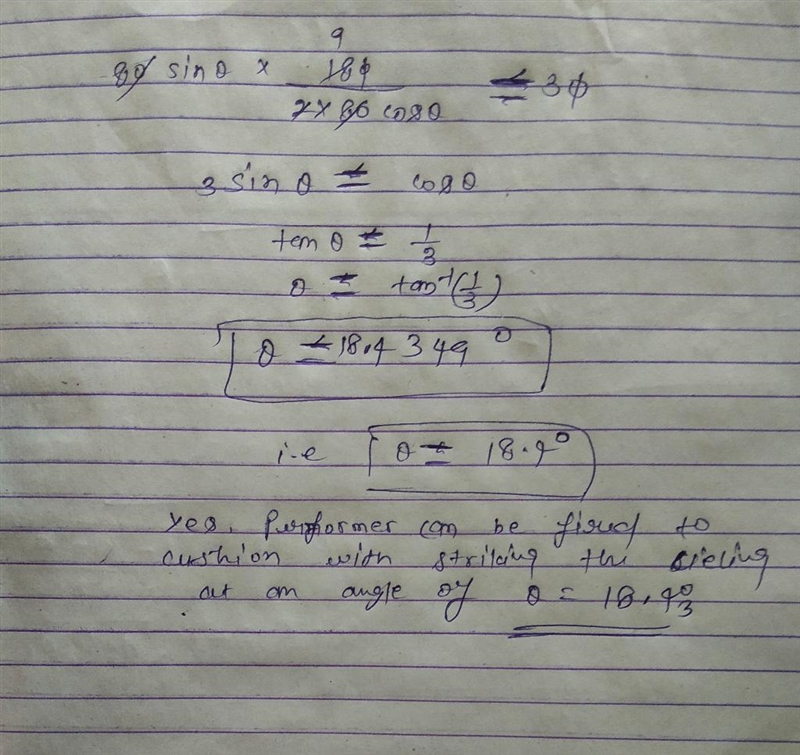 9
80 sinθ × 180 / 2×80 cosθ = 30
3 sin θ = cosθ
tan θ = 1/3
θ = tan⁻¹(1/3)
θ = 18.4349°
i.e θ = 18.4°
Yes, Performer can be fired to
cushion with striking the cieling
at an angle of θ = 18.43°